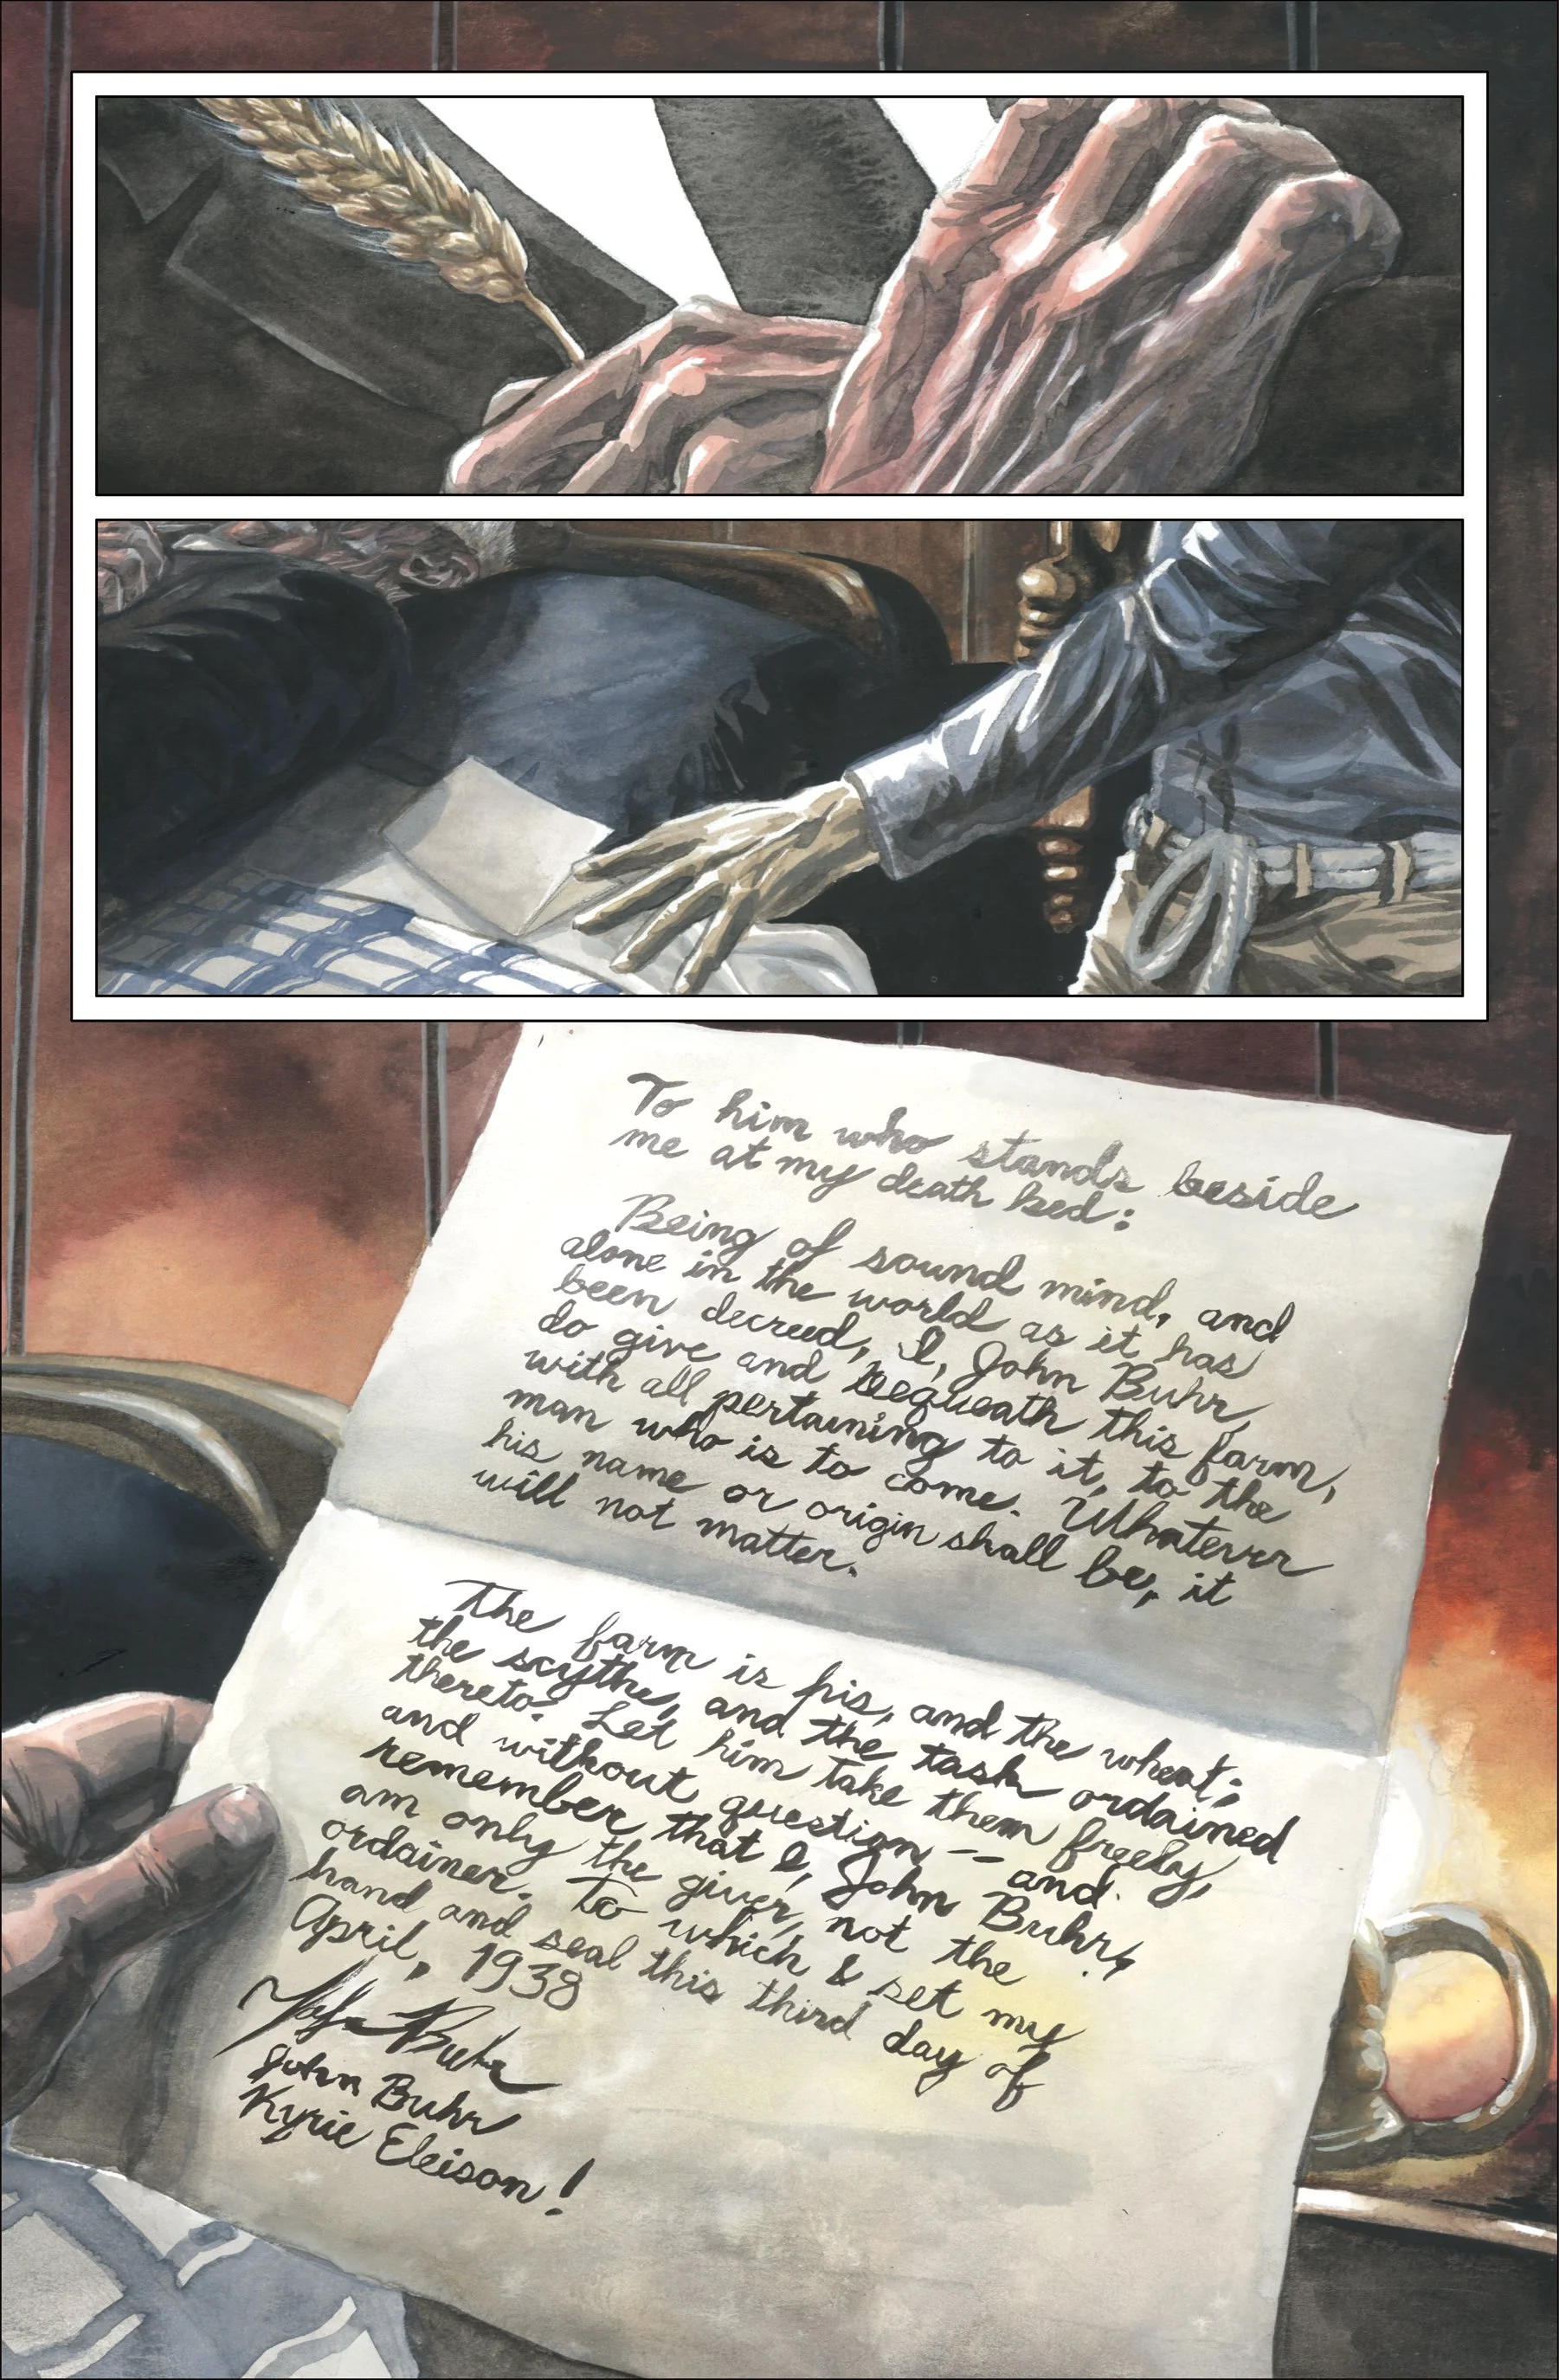 To him who stands beside
me at my death bed:
Being of sound mind, and
alone in the world as it has
been decreed, I, John Buhr,
do give and bequeath this farm,
with all pertaining to it, to the
man who is to come. Whatever
his name or origin shall be, it
will not matter.
The farm is his, and the wheat;
the scythe, and the task ordained
thereto. Let him take them freely,
and without question -- and
remember that I, John Buhr,
am only the giver, not the
ordainer. To which I set my
hand and seal this third day of
April, 1938
John Buhr
John Buhr
Kyrie Eleison!